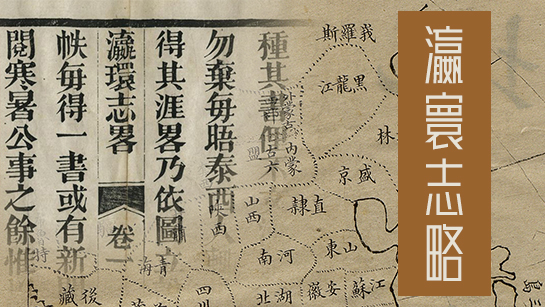 瀛寰志略
種其書俚
勿棄每晤泰西
得其涯畧乃依圖
瀛環志畧 卷一
帙每得一書或有新
閱寒暑公事之餘惟
峩羅斯
黑龍江
林
內蒙古六盟
盛京
直隸
山西
陝西
山東
河南
江蘇
安徽
湖北
四川
青海
後藏